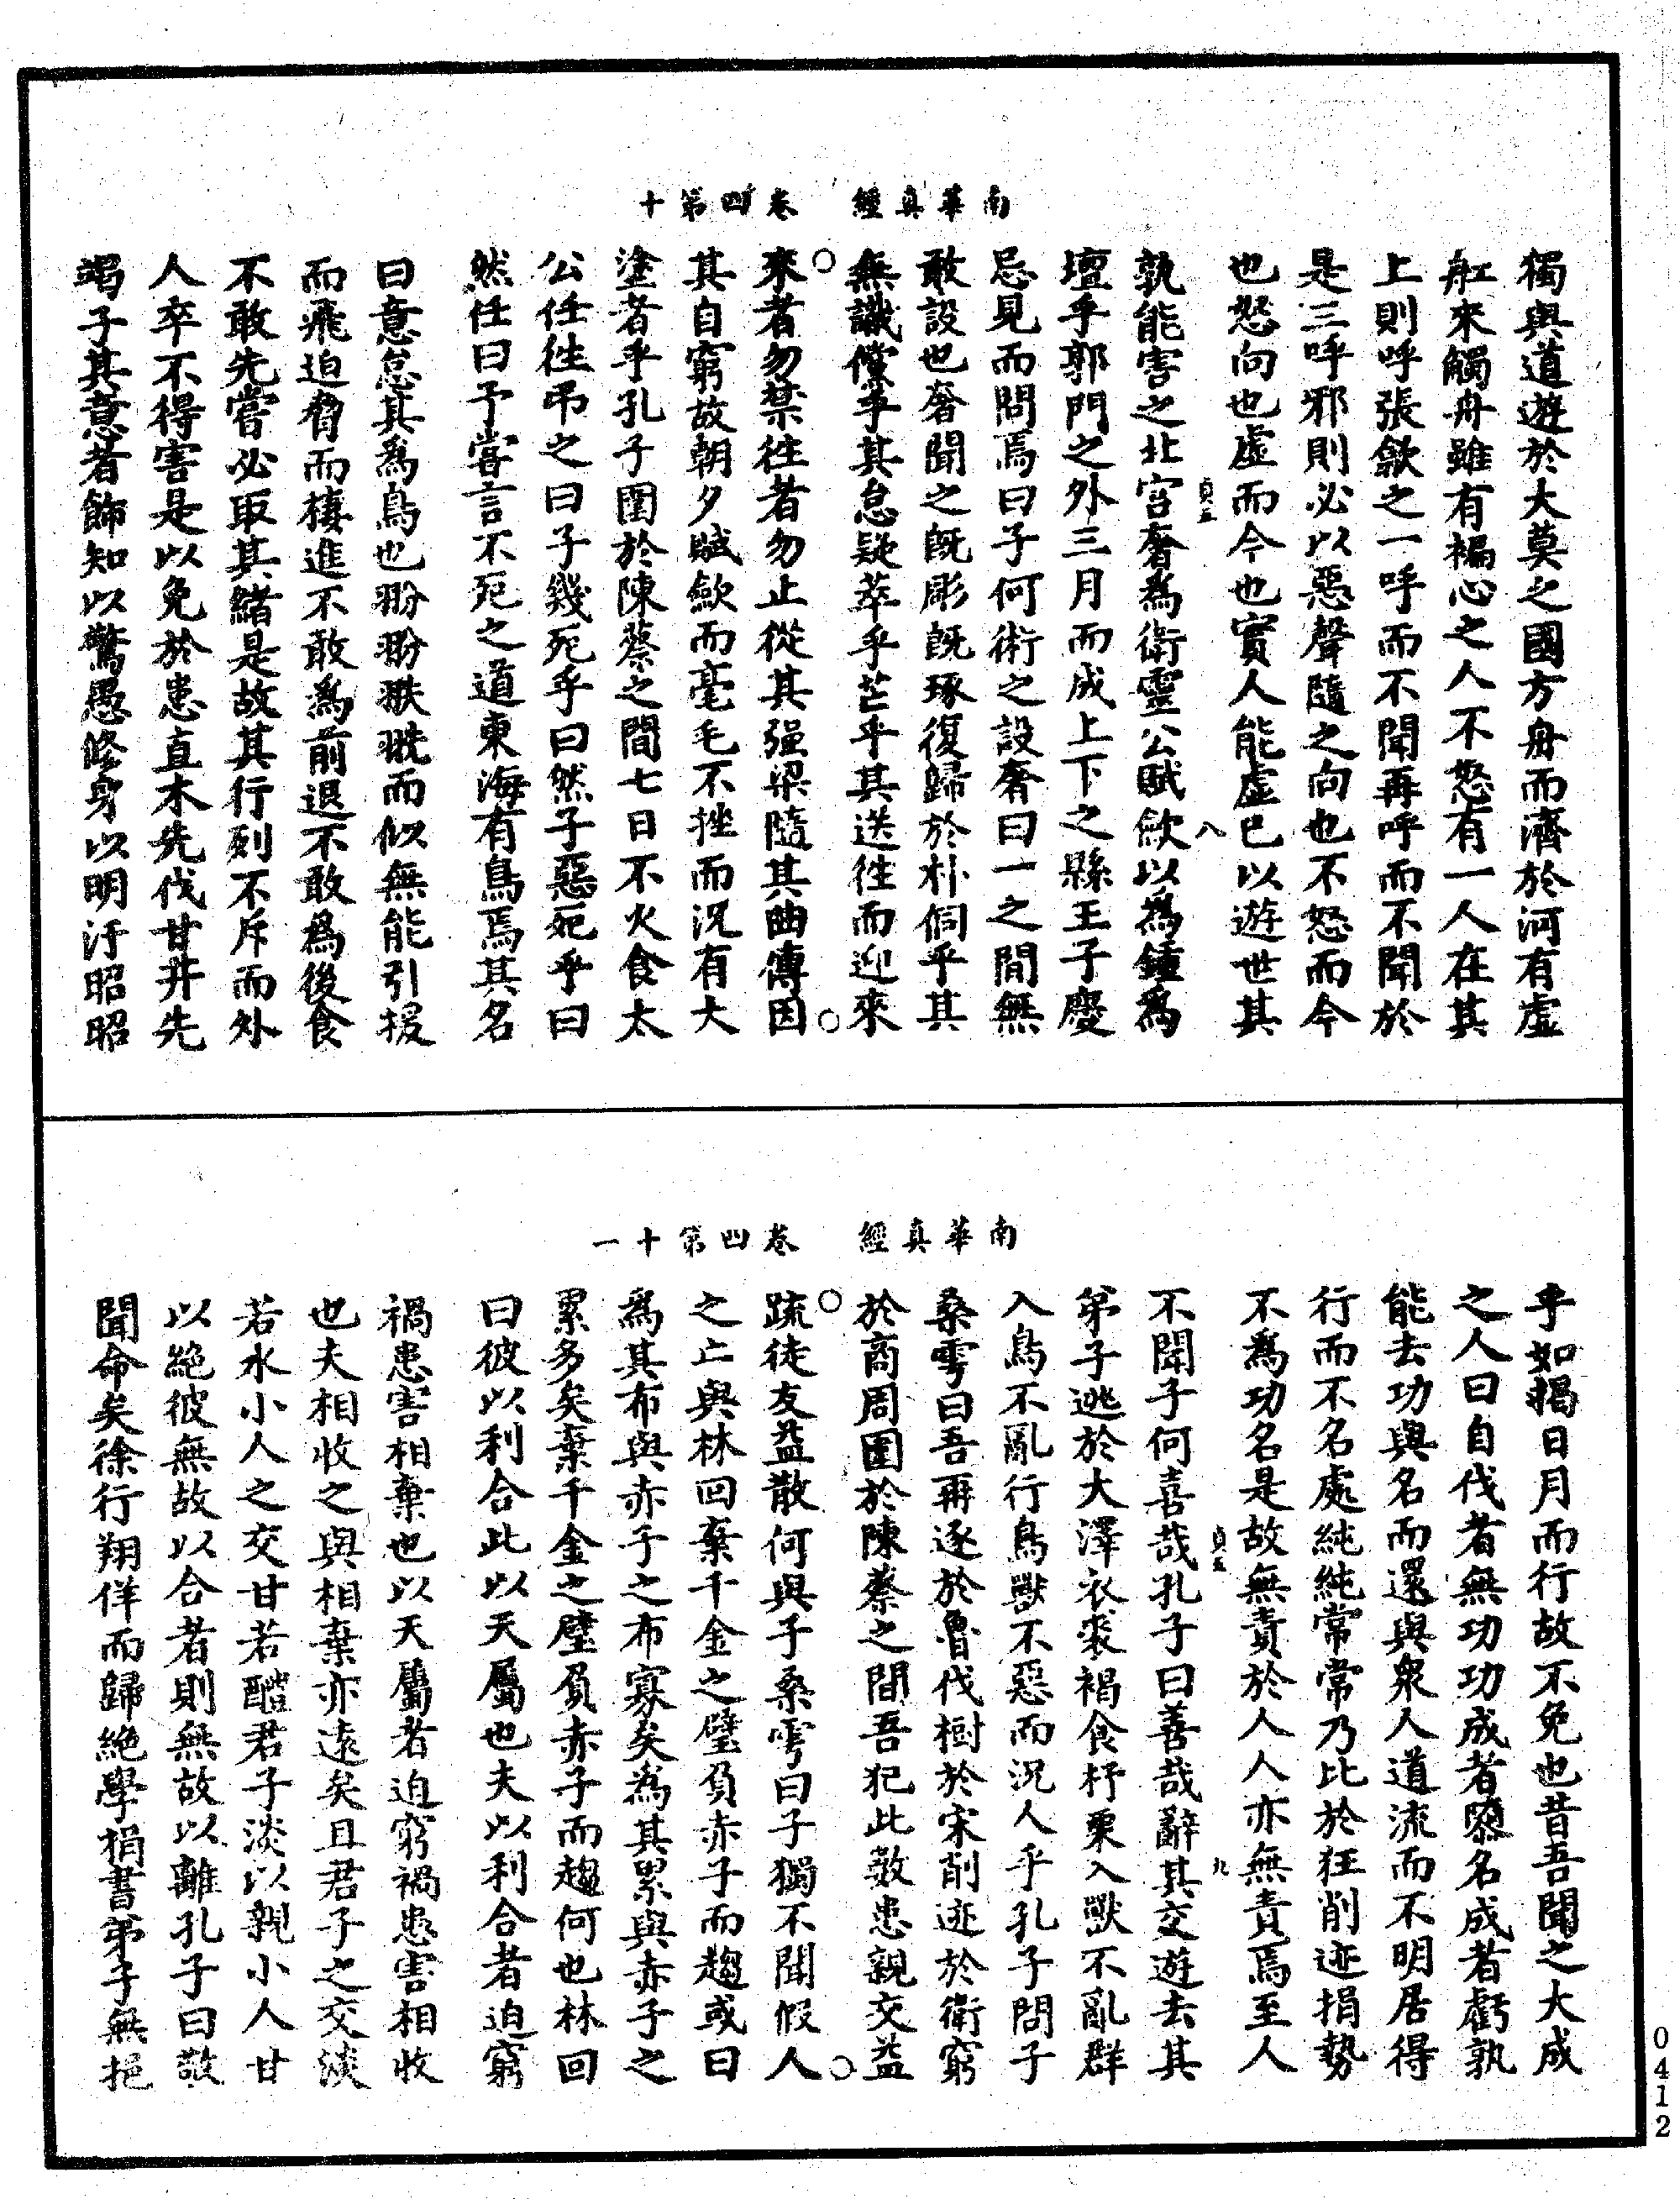 南華真經　卷四第十
獨與道遊於大莫之國方舟而濟於河有虛
舡來觸舟雖有褊心之人不怒有一人在其
上則呼張歙之一呼而不聞再呼而不聞於
是三呼邪則必以惡聲隨之向也不怒而今
也怒向也虛而今也實人能虛已以遊世其
貞五　八
孰能害之北宮奢為衛靈公賦歛以為鍾為
壇乎郭門之外三月而成上下之縣王子慶
忌見而問焉曰子何術之設奢曰一之間無
敢設也奢聞之既彫既琢復歸於朴侗乎其
無識儻乎其怠疑萃乎芒乎其送徃而迎來
來者勿禁徃者勿止從其强梁隨其曲傳因
其自窮故朝夕賦歛而毫毛不挫而況有大
塗者乎孔子圍於陳蔡之間七日不火食太
公任徃弔之曰子幾死乎曰然子惡死乎曰
然任曰予嘗言不死之道東海有鳥焉其名
曰意怠其為鳥也翂翂翐翐而似無能引援
而飛迫脅而棲進不敢為前退不敢為後食
不敢先嘗必取其緒是故其行列不斥而外
人卒不得害是以免於患直木先伐甘井先
竭子其意者飾知以驚愚修身以明汙昭昭
南華真經　卷四第十一
乎如揭日月而行故不免也昔吾聞之大成
之人曰自伐者無功功成者隳名成者虧孰
能去功與名而還與衆人道流而不明居得
行而不名處純純常常乃比於狂削迹捐勢
不為功名是故無責於人人亦無責焉至人
貞五　九
不聞子何喜哉孔子曰善哉辭其交遊去其
弟子逃於大澤衣裘褐食杼栗入獸不亂群
入鳥不亂行鳥獸不惡而況人乎孔子問子
桑雽曰吾再逐於魯伐樹於宋削迹於衛窮
於商周圍於陳蔡之間吾犯此數患親交益
疏徒友益散何與子桑雽曰子獨不聞假人
之亡與林回棄千金之璧負赤子而趨或曰
為其布與赤子之布寡矣為其累與赤子之
累多矣棄千金之璧負赤子而趨何也林回
曰彼以利合此以天屬也夫以利合者迫窮
禍患害相棄也以天屬者迫窮禍患害相收
也夫相收之與相棄亦遠矣且君子之交淡
若水小人之交甘若醴君子淡以親小人甘
以絕彼無故以合者則無故以離孔子曰敬
聞命矣徐行翔佯而歸絕學捐書弟子無挹
0412